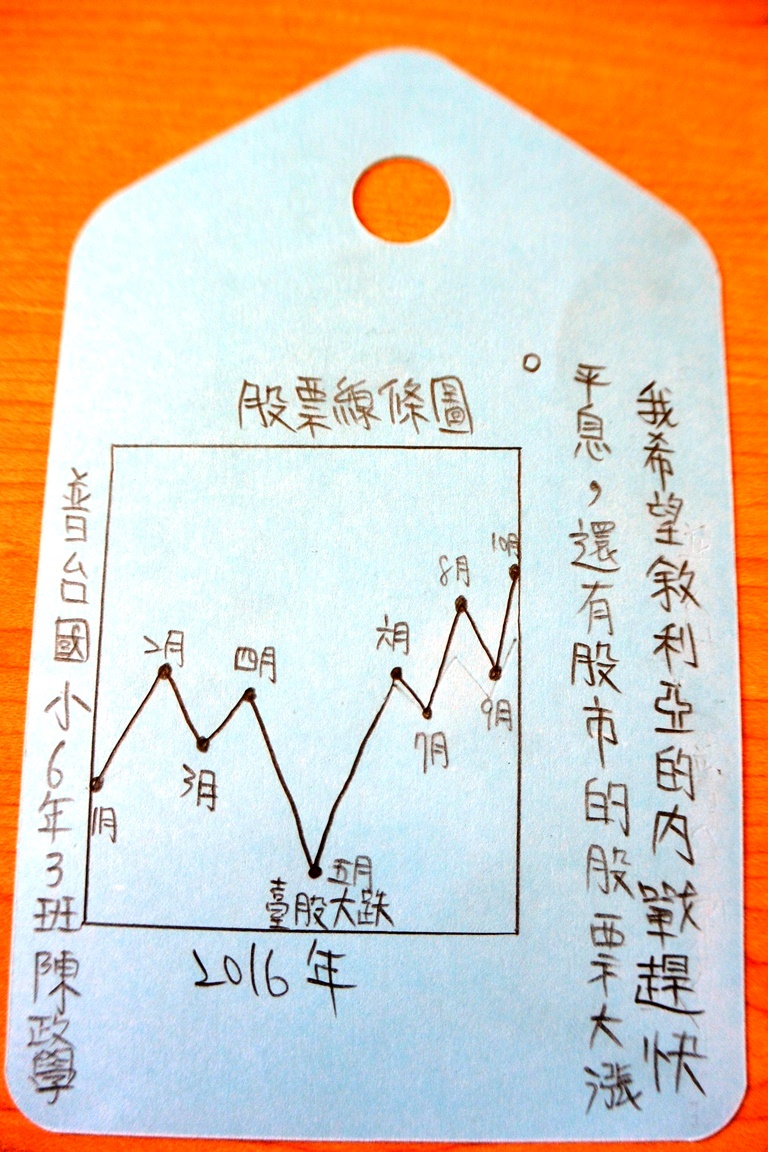 我希望敘利亞的內戰趕快
平息，還有股市的股票大漲
。
股票線條圖
1月
2月
3月
四月
五月
臺股大跌
六月
7月
8月
9月
10月
2016年
普台國小6年3班陳政學